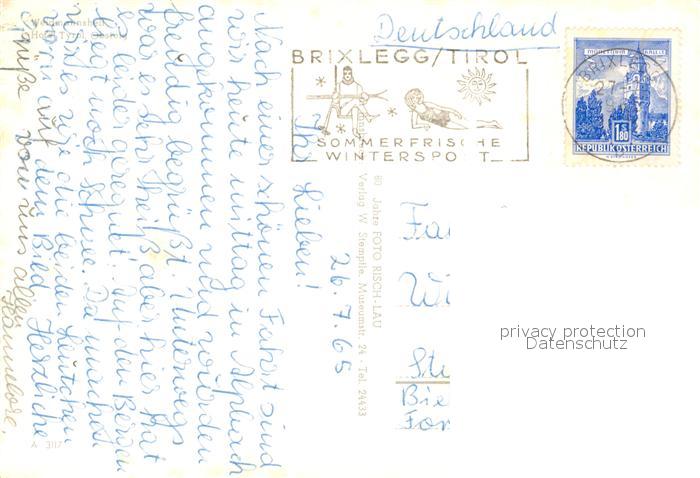 Deutschland
BRIXLEGG/TIROL
SOMMERFRISCHE
WINTERSPORT
BRIXLEGG
1.80
S
REPUBLIK ÖSTERREICH
Hotel Tyrol,
26.7.65
Ihr Lieben!
Nach einer schönen Fahrt sind
wir heute mittag in Alpbach
angekommen und wurden
freudig begrüßt. Unterwegs
war es sehr heiß aber hier hat
es leider geregnet. Auf den Bergen
liegt noch Schnee. Da machst
wie die beiden Leutchen
auf dem Bild. Herzliche
Grüße von uns allen
Hannelore.
A 3117
80 Jahre FOTO RISCH-LAU
Verlag W. Stempfle, Museumstr. 24 - Tel. 24433
Fa
Wi
Stu
Bie
For
privacy protection
Datenschutz